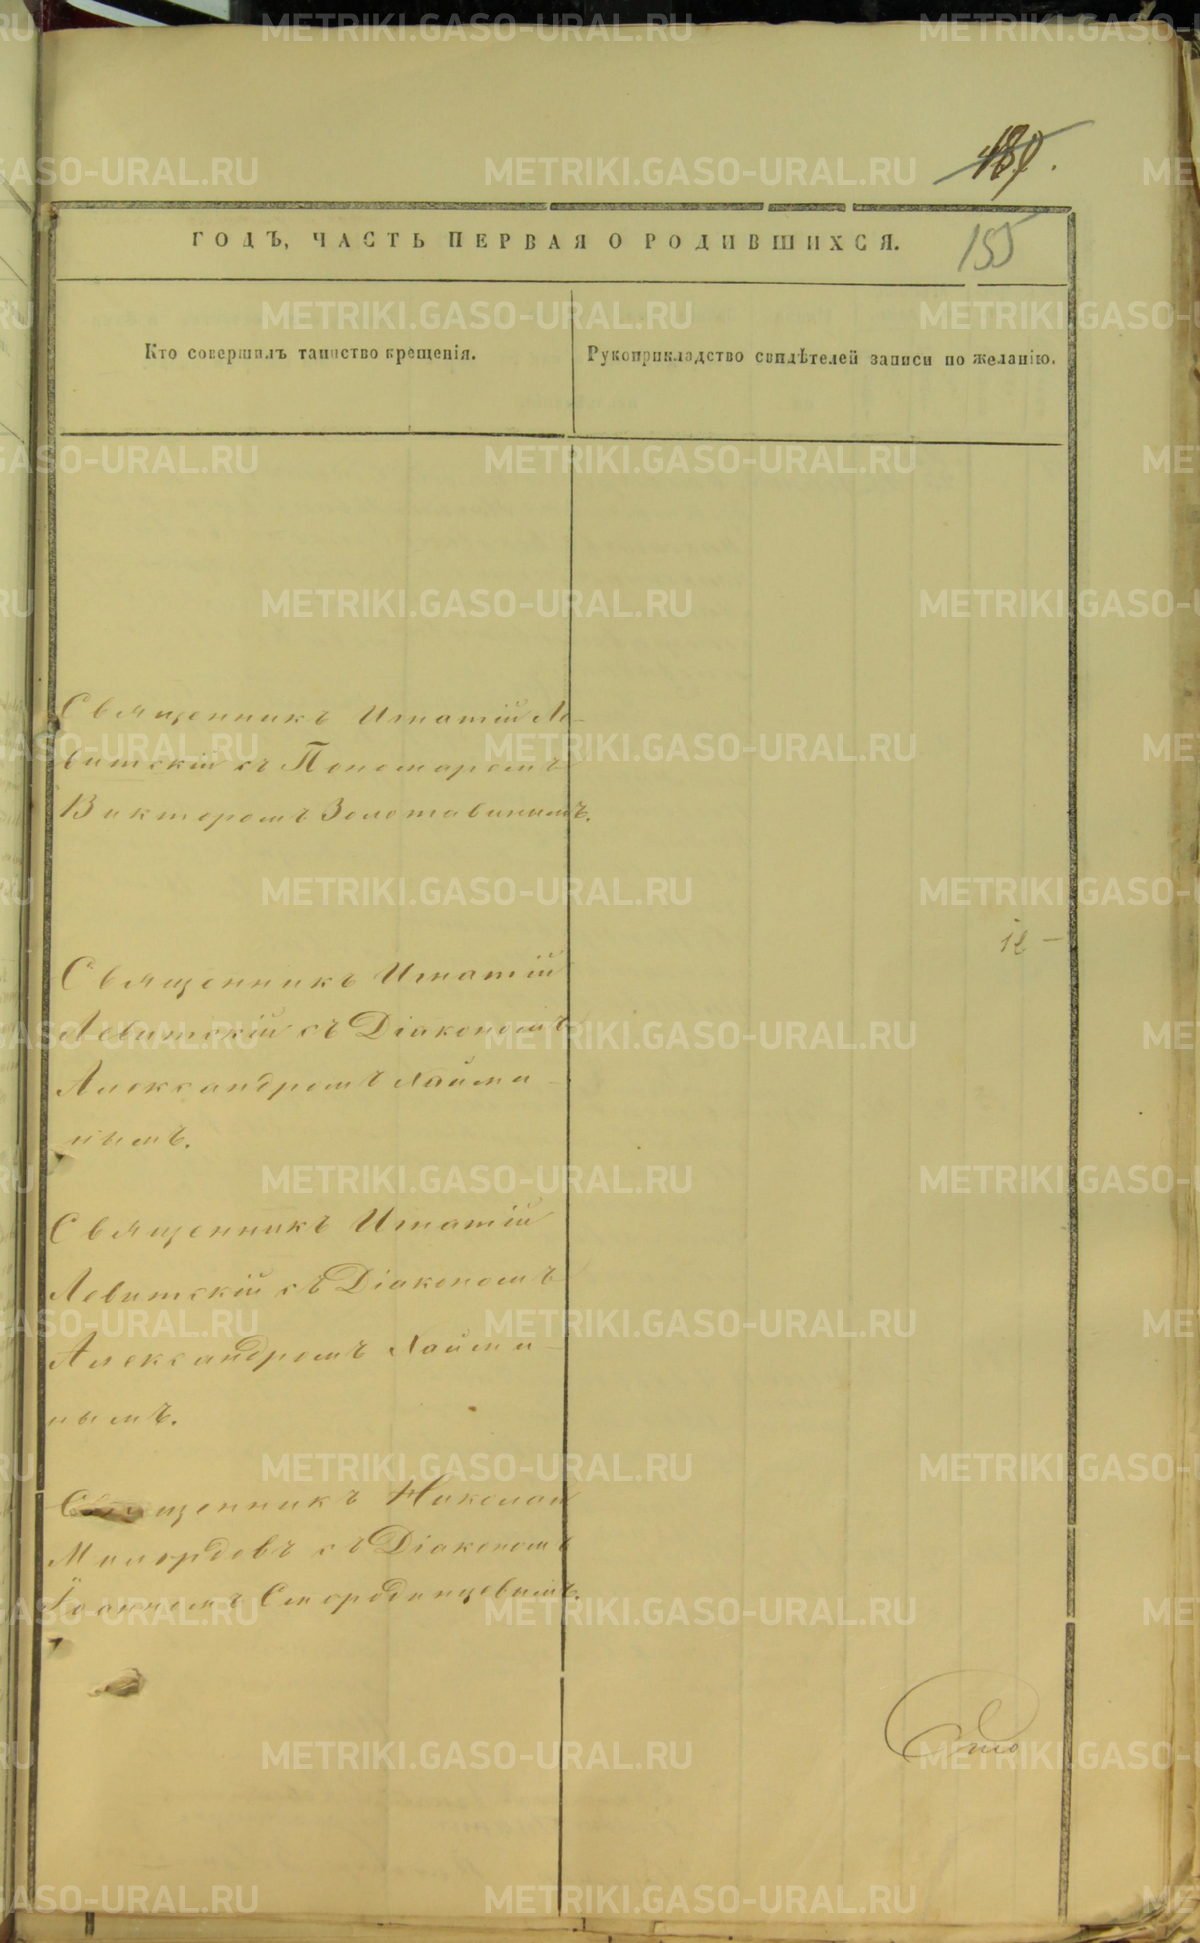 489.
ГОДЪ, ЧАСТЬ ПЕРВАЯ О РОДИВШИХСЯ.
155
Кто совершилъ таинство крещенія.
Рукоприкладство свидѣтелей записи по желанію.
Священникъ Игнатій Ле-
витскій съ Пономаремъ
Викторомъ Золотавинымъ.
12 —
Священникъ Игнатій
Левитскій съ Діакономъ
Александромъ Хайми-
нымъ.
Священникъ Игнатій
Левитскій съ Діакономъ
Александромъ Хайми-
нымъ.
Священникъ Николай
съ Діакономъ
Іоанномъ Смородинцевымъ.
METRIKI.GASO-URAL.RU